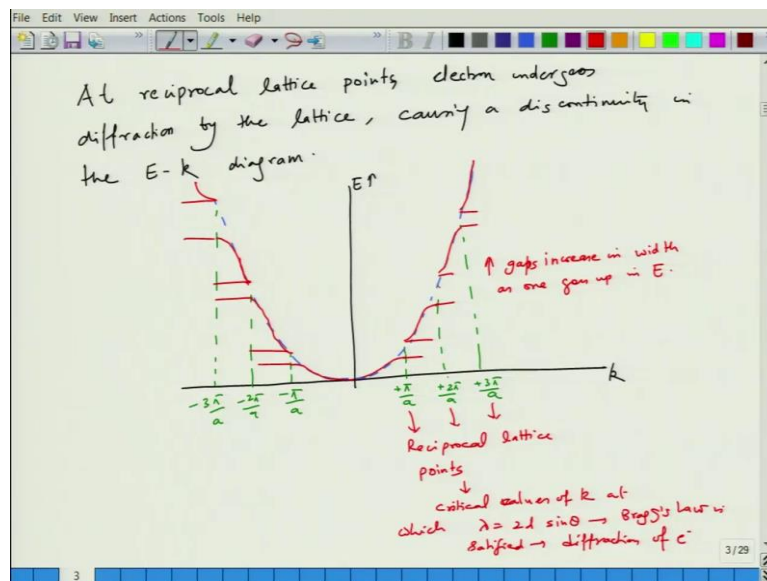 File Edit View Insert Actions Tools Help
At reciprocal lattice points electron undergoes
diffraction by the lattice, causing a discontinuity in
the E-k diagram.
E↑
↑ gaps increase in width
as one goes up in E.
k
-3π/a -2π/a -π/a +π/a +2π/a +3π/a
Reciprocal lattice
points
critical values of k at
which λ = 2d sinθ → Bragg's Law is
satified → diffraction of e⁻
3/29
3